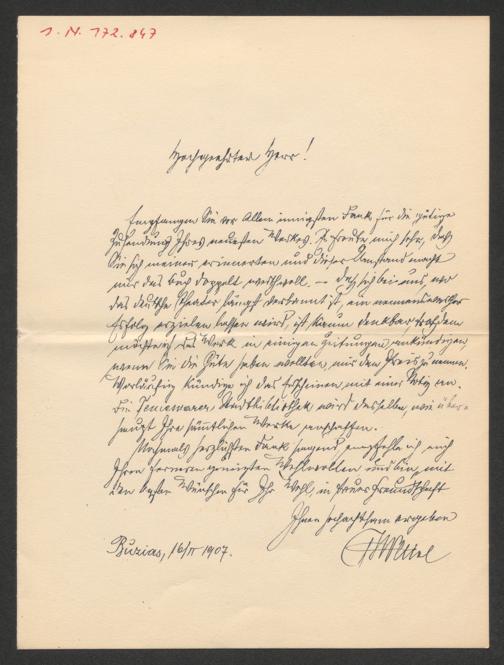 I. N. 172.847
Hochgeehrter Herr!
Empfangen Sie vor Allem innigsten Dank für die gütige
Zusendung Ihres neuesten Werkes. Es freute mich sehr, daß
Sie sich meiner erinnerten und dieser Umstand macht
mir das Buch doppelt werthvoll. — Daß sich bei uns, wo
das deutsche Theater längst verbannt ist, ein nennenswerther
Erfolg erzielen lassen wird, ist kaum denkbar trotzdem
möchte ich das Werk in einigen Zeitungen ankündigen,
wenn Sie die Güte haben wollten, mir den Preis zu nennen.
Vorläufig kündige ich das Erscheinen mit einer Notiz an.
Die Temesvarer Stadtbibliothek wird dasselbe, wie über-
haupt Ihre sämtlichen Werke anschaffen.
Nochmals herzlichsten Dank sagend, empfehle ich mich
Ihrem ferneren geneigten Wohlwollen und bin, mit
den besten Wünschen für Ihr Wohl, in treuer Freundschaft
Ihnen hochachtsam ergeben
Buzias, 16/II 1907.